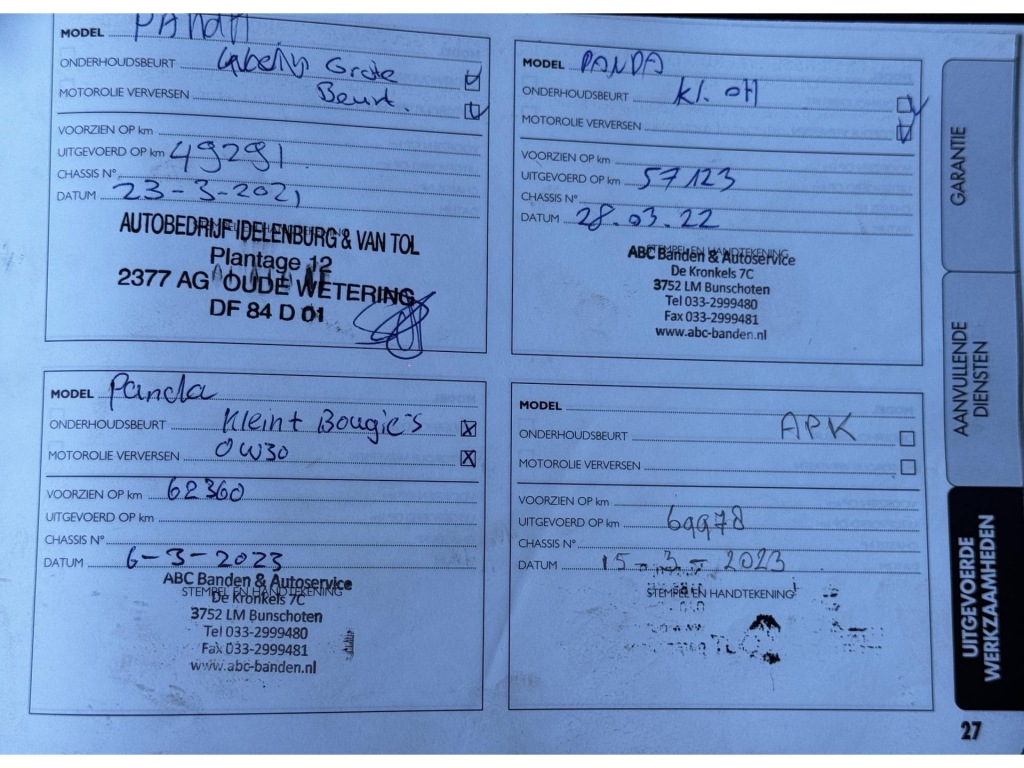 MODEL PANDA
ONDERHOUDSBEURT Grote
MOTOROLIE VERVERSEN Beurt.
VOORZIEN OP km
UITGEVOERD OP km 49291
CHASSIS N°
DATUM 23-3-2021
AUTOBEDRIJF IDELENBURG & VAN TOL
Plantage 12
2377 AG OUDE WETERING
DF 84 D 01
MODEL PANDA
ONDERHOUDSBEURT kl. OH
MOTOROLIE VERVERSEN
VOORZIEN OP km
UITGEVOERD OP km 57123
CHASSIS N°
DATUM 28.03.22
STEMPEL EN HANDTEKENING
ABC Banden & Autoservice
De Kronkels 7C
3752 LM Bunschoten
Tel 033-2999480
Fax 033-2999481
www.abc-banden.nl
MODEL Panda
ONDERHOUDSBEURT Klein + Bougie's
MOTOROLIE VERVERSEN 0W30
VOORZIEN OP km 62360
UITGEVOERD OP km
CHASSIS N°
DATUM 6-3-2023
ABC Banden & Autoservice
STEMPEL EN HANDTEKENING
De Kronkels 7C
3752 LM Bunschoten
Tel 033-2999480
Fax 033-2999481
www.abc-banden.nl
MODEL
ONDERHOUDSBEURT APK
MOTOROLIE VERVERSEN
VOORZIEN OP km
UITGEVOERD OP km 69978
CHASSIS N°
DATUM 15-3-2023
STEMPEL EN HANDTEKENING
GARANTIE
AANVULLENDE
DIENSTEN
UITGEVOERDE
WERKZAAMHEDEN
27